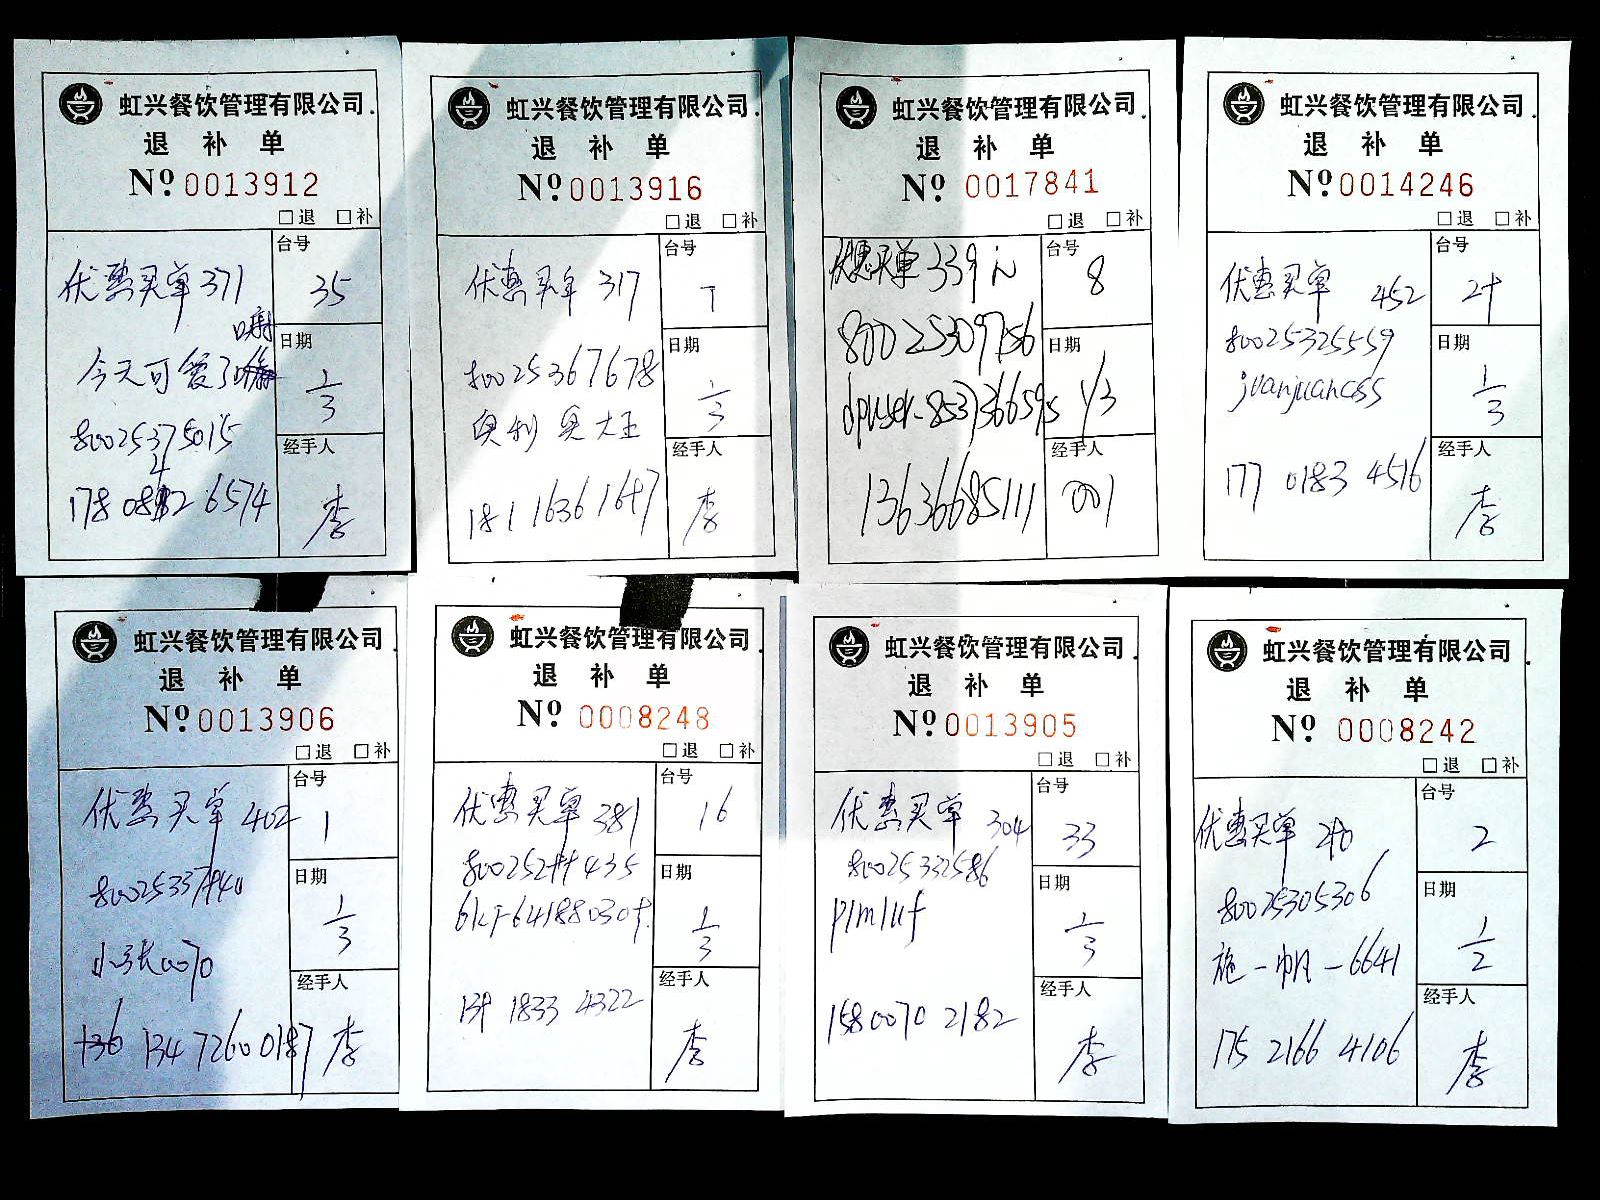 虹兴餐饮管理有限公司
退 补 单
Nº 0013912
□退 □补
台号
优惠买单 371
35
日期
今天可爱了
1/3
80025375015
经手人
李
虹兴餐饮管理有限公司
退 补 单
Nº 0013916
□退 □补
台号
优惠买单 317
7
日期
80025367678
1/3
奥利奥大王
经手人
181 1636 1647
李
虹兴餐饮管理有限公司
退 补 单
Nº 0017841
□退 □补
台号
优惠买单 339元
8
80025309756
日期
1/3
经手人
13636685111
001
虹兴餐饮管理有限公司
退 补 单
Nº 0014246
□退 □补
台号
优惠买单 452
24
80025325559
日期
juanjuancss
1/3
经手人
177 0183 4516
李
虹兴餐饮管理有限公司
退 补 单
Nº 0013906
□退 □补
台号
优惠买单 402
1
日期
小张0070
1/3
经手人
134 7260 0187
李
虹兴餐饮管理有限公司
退 补 单
Nº 0008248
□退 □补
台号
优惠买单 381
16
日期
1/3
经手人
1833 4322
李
虹兴餐饮管理有限公司
退 补 单
Nº 0013905
□退 □补
台号
优惠买单 304
33
80025332586
日期
p1m1uf
1/3
经手人
158 0070 2182
李
虹兴餐饮管理有限公司
退 补 单
Nº 0008242
□退 □补
台号
优惠买单
2
80025305306
日期
施一帆-6641
1/2
经手人
175 2166 4106
李